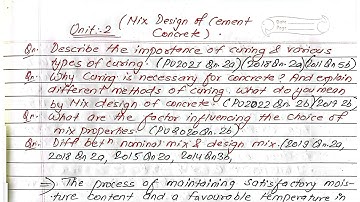 Unit:2 (Mix Design of Cement
Concrete).
Qn. Describe the importance of curing & various
types of curing. (PU2021 Qn.2a)(2018 Qn.2a)(2011 Qn.5b)
Qn. Why curing is necessary for concrete? And explain
different methods of curing. what do you mean
by Mix design of concrete. (PU2022 Qn.2b)(2019 2b)
Qn. What are the factor influencing the choice of
mix properties. (PU2020 Qn.2b)
Qn. Diff betn nominal mix & design mix. (2019 Qn.2a,
2018 Qn 2a, 2015 Qn 2a, 2014 Qn 3b,
⇒ The process of maintaining satisfactory mois-
ture content and a favourable temperature in